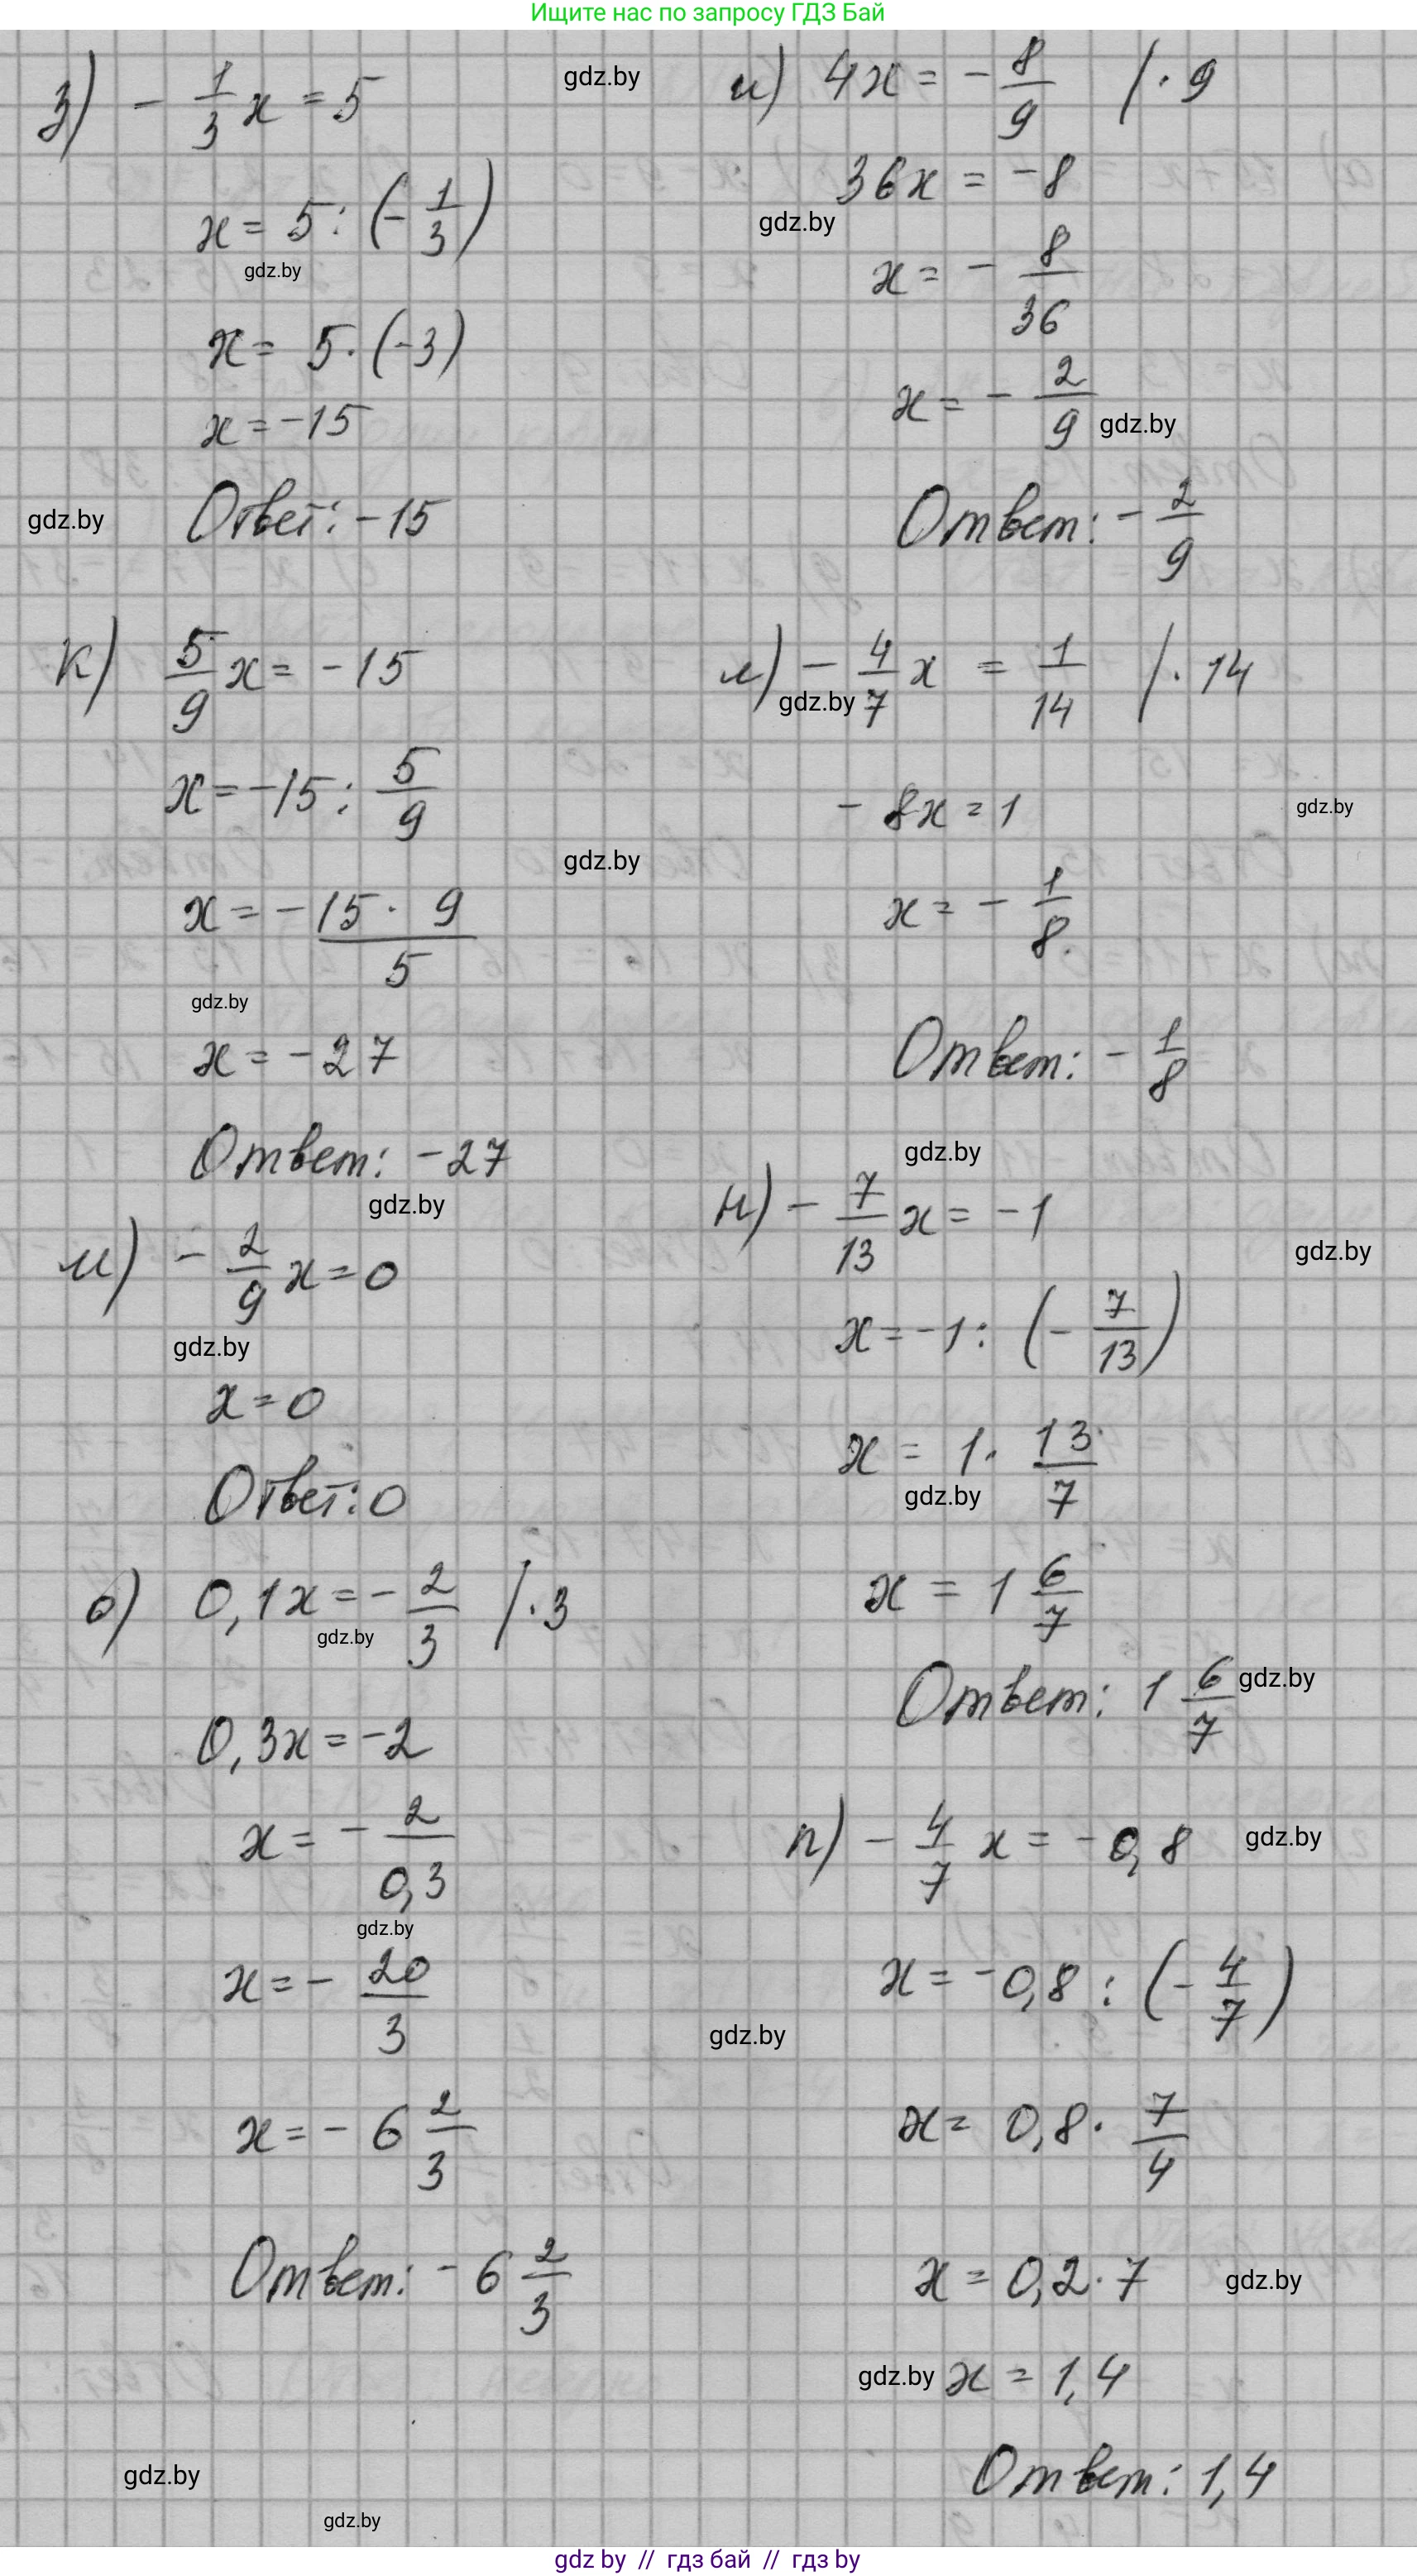 Ищите нас по запросу ГДЗ Бай
з) - 1/3 x = 5
gdz.by
x = 5 : (- 1/3)
gdz.by
x = 5 · (-3)
x = -15
gdz.by
Ответ: -15
и) 4x = - 8/9 / · 9
36x = -8
gdz.by
x = - 8/36
x = - 2/9
gdz.by
Ответ: - 2/9
к) 5/9 x = -15
x = -15 : 5/9
gdz.by
x = - 15 · 9/5
gdz.by
x = -27
Ответ: -27
gdz.by
л) - 4/7 x = 1/14 / · 14
gdz.by
- 8x = 1
gdz.by
x = - 1/8
Ответ: - 1/8
gdz.by
м) - 2/9 x = 0
gdz.by
x = 0
Ответ: 0
н) - 7/13 x = -1
gdz.by
x = -1 : (- 7/13)
x = 1 · 13/7
gdz.by
x = 1 6/7
Ответ: 1 6/7
gdz.by
о) 0,1x = - 2/3 / · 3
gdz.by
0,3x = -2
x = - 2/0,3
gdz.by
x = - 20/3
gdz.by
x = - 6 2/3
Ответ: - 6 2/3
п) - 4/7 x = -0,8
gdz.by
x = -0,8 : (- 4/7)
x = 0,8 · 7/4
x = 0,2 · 7
gdz.by
gdz.by
x = 1,4
Ответ: 1,4
gdz.by
gdz.by
gdz by // гдз бай // гдз by